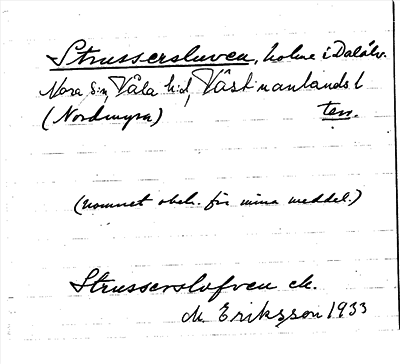 Strussersluven, holme i Dalälv.
Nora sn, Våla hd, Västmanlands l
(Nordmyra) terr.
(namnet obek. för mina meddel.)
Strusserslufven ek.
M Eriksson 1933